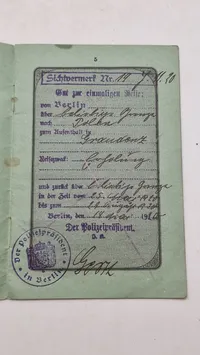 5
Sichtvermerk Nr. 19
Gut zur einmaligen Reise
von Berlin
über beliebige Grenze
nach Polen
zum Aufenthalt in
Graudenz
Reisezweck: Erholung
und zurück über beliebige Grenze
in der Zeit vom 25. Mai 1920
bis zum
Berlin, den 18. Mai 1920
Der Polizeipräsident.
Der Polizeipräsident in Berlin